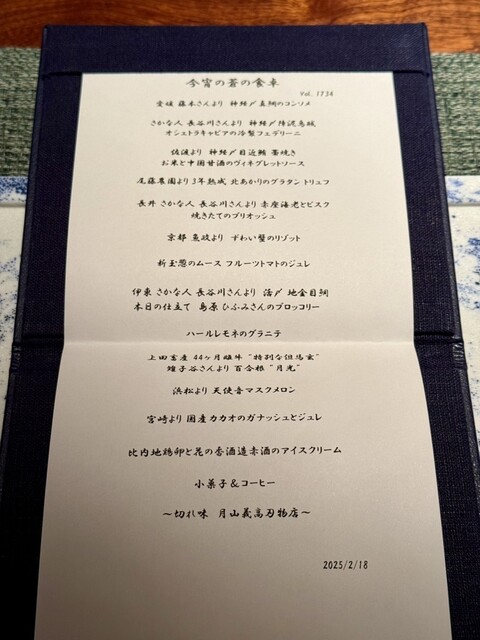 今宵の蒼の食卓
Vol. 1734
愛媛 藤本さんより 神経〆真鯛のコンソメ
さかな人 長谷川さんより 神経〆障泥烏賊
オシェトラキャビアの冷製フェデリーニ
佐渡より 神経〆目近鮪 藁焼き
お米と中国甘酒のヴィネグレットソース
尾藤農園より3年熟成 北あかりのグラタン トリュフ
長井 さかな人 長谷川さんより 赤座海老とビスク
焼きたてのブリオッシュ
京都 魚政より ずわい蟹のリゾット
新玉葱のムース フルーツトマトのジュレ
伊東 さかな人 長谷川さんより 活〆 地金目鯛
本日の仕立て 島原 ひふみさんのブロッコリー
ハールレモネのグラニテ
上田畜産 44ヶ月雌牛 "特別な但馬玄"
雉子谷さんより 百合根 "月光"
浜松より 天使音マスクメロン
宮崎より 国産カカオのガナッシュとジュレ
比内地鶏卵と花の香酒造赤酒のアイスクリーム
小菓子&コーヒー
〜切れ味 月山義高刃物店〜
2025/2/18